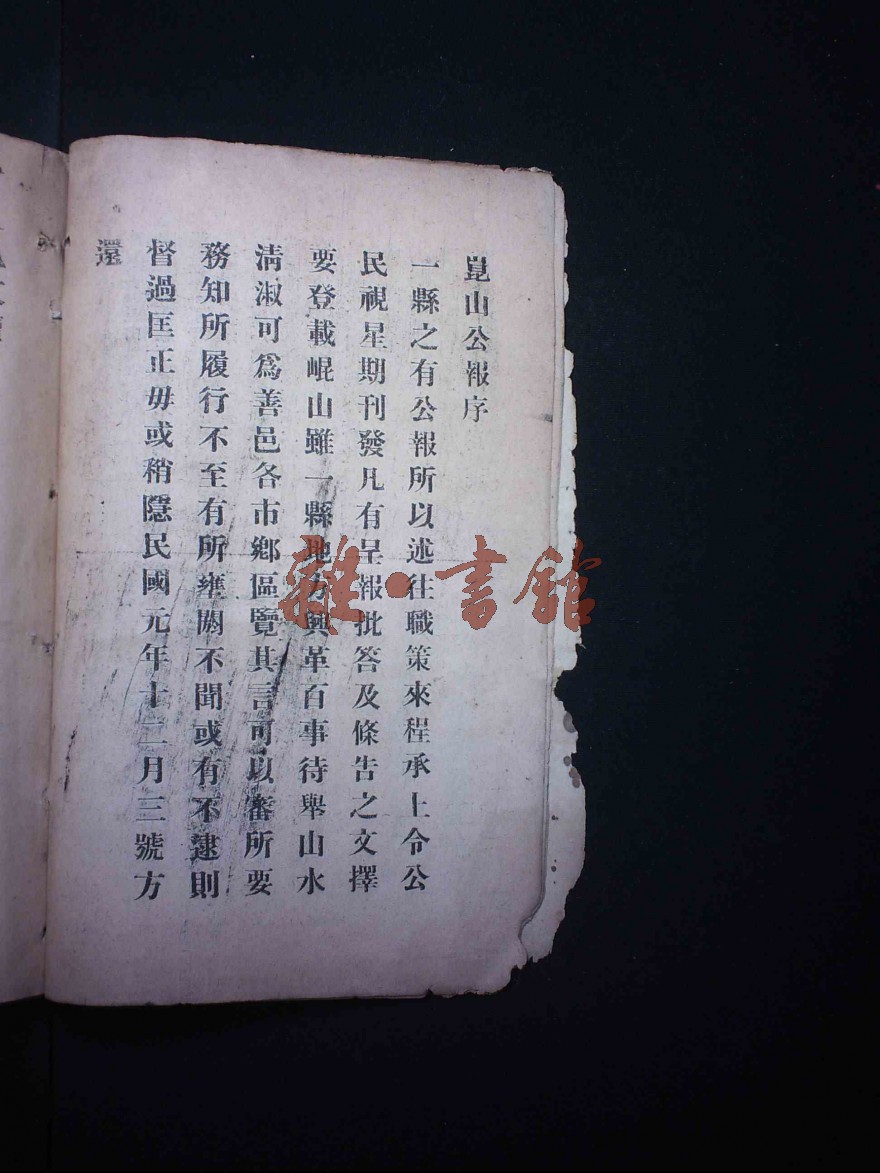 崑山公報序
一縣之有公報所以述往職策來程承上令公
民視星期刊發凡有呈報批答及條告之文擇
要登載崐山雖一縣地方興革百事待舉山水
淸淑可爲善邑各市鄉區覽其言可以審所要
務知所履行不至有所壅閼不聞或有不逮則
督過匡正毋或稍隱民國元年十二月三號方
還
雜·書館